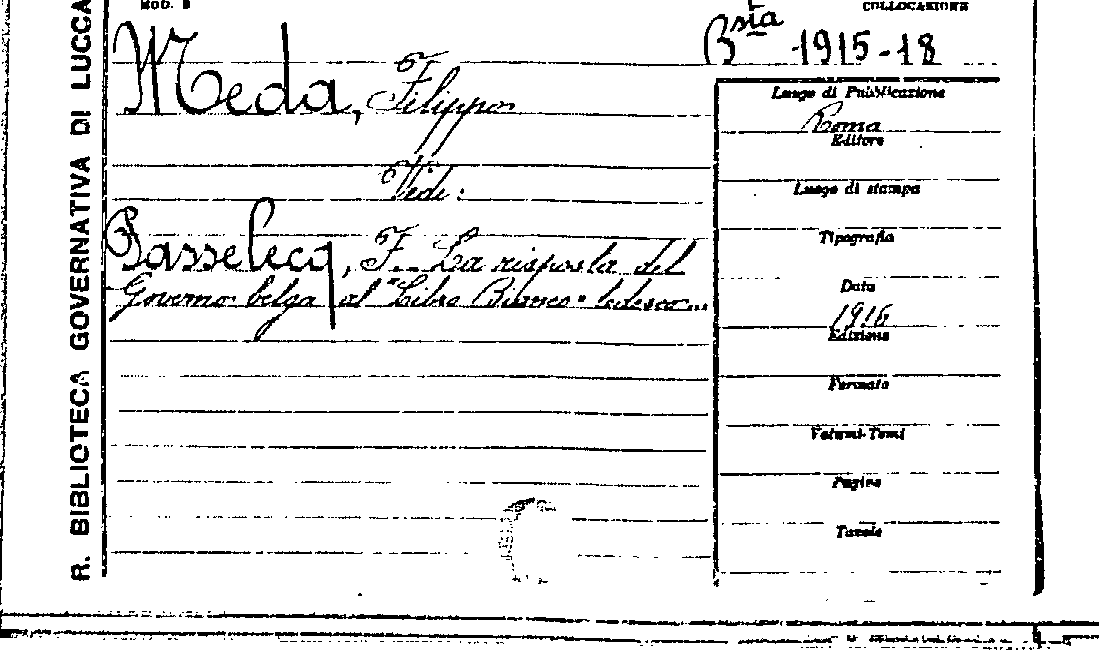 MOD. B
COLLOCAZIONE
R. BIBLIOTECA GOVERNATIVA DI LUCCA
Bsta 1915-18
Meda, Filippo
Vedi:
Passelecq, F. La risposta del
Governo belga al "Libro Bianco" tedesco...
Luogo di Pubblicazione
Roma
Editore
Luogo di stampa
Tipografia
Data
1916
Edizione
Formato
Volumi-Tomi
Pagine
Tavole